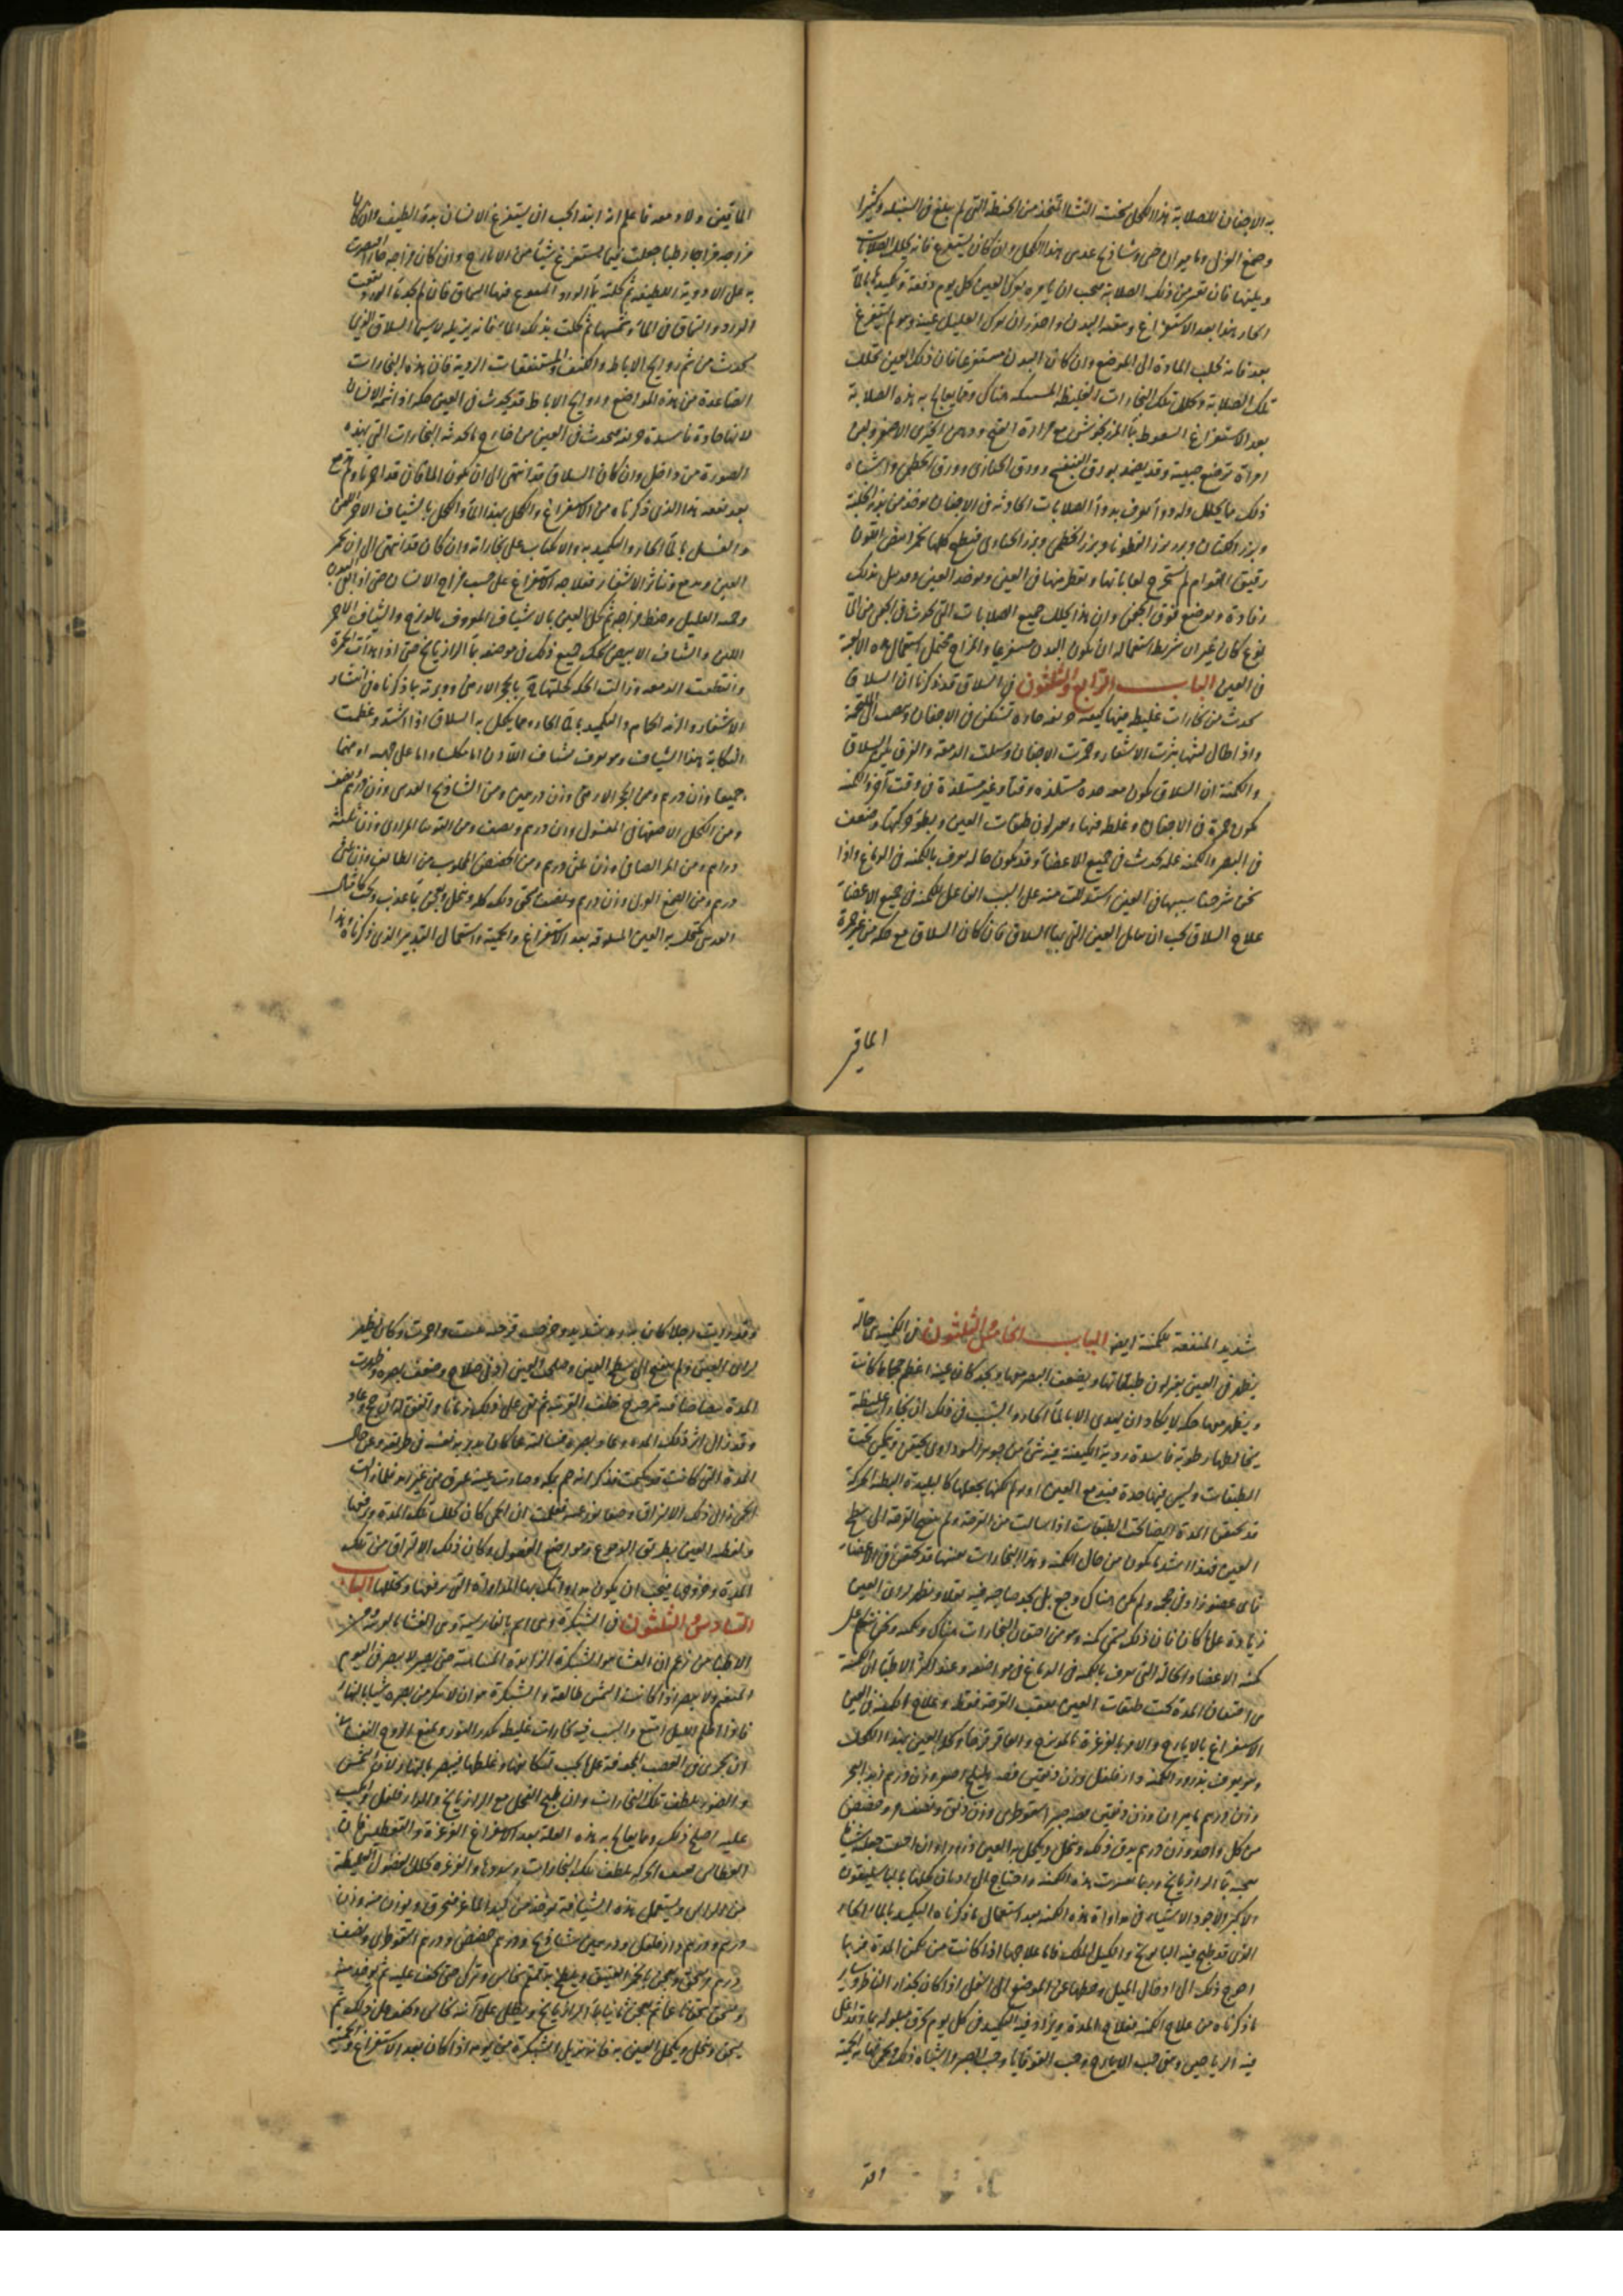 به الاجفان للصلابة هذا الكحل سخت النشا المتخذ من الحنطة التى لم يبلغ فى السنبلة وكثيرا
وصمغ اللوز وماميران صى وشاذنج عدسى هذا الكحل وان كان يستفرغ فانه يحلل الصلابات
ويلينها فان تعسر من ذلك الصلابة فيجب ان يامره بترك العين كل يوم دفعة وتكميدها بالماء
الحار هذا بعد الاستفراغ وتفقد البدن واحذر ان تترك العليل عينه وهو لم يستفرغ
بعد فانه يجلب المادة الى الموضع وان كان البدن مستفرغا فان ذلك العين تحلل
تلك الصلابة وتحلل تلك البخارات الغليظة المستمسكة هناك ومما يعالج به هذه الصلابة
بعد الاستفراغ السعوط بماء المرزنجوش مع مرارة
امراة ترضع صبيه وقد يضمد بورق البنفسج وورق الخبازى وورق الخطمى واشباه
ذلك مما يحلل وله دواء يعرف بدواء الصلابات الحادثة فى الاجفان يوخذ من بزر الحلبة
وبزر الكتان وبزر بزر القطونا وبزر الخطمى وبزر الخبازى فيطبخ كلها
رقيق القوام ثم يستخرج لعاباتها ويقطر منها فى العين ويوضع
رفادة ويوضع فوق الجفن وان هذا يحلل جميع الصلابات التى تحدث فى الجفن من اى
نوع كان غير ان شرط استعماله ان يكون البدن مستفرغا والمزاج محتمل استعمال
فى العين الباب الرابع والثلثون فى السلاق قد ذكرنا ان السلاق
يحدث من بخارات غليظة فيها كيفية حادة تسكن فى الاجفان
واذا طال لبثها نثرت الاشفار وحمرت الاجفان وسلت الدمعة والفرق بين السلاق
والكمنة ان السلاق يكون معه حكة مستلذة وقتا وغير مستلذة فى وقت آخر والكمنة
تكون حمرة فى الاجفان وغلظ فيها وتغير لون طبقات العين وبطو حركتها وضعف
فى البصر والكمنة علة تحدث فى جميع الاعضاء وقد يكون حالة يعرف بالكمنة فى الدماغ واذا
نحن شرحنا سببها فى العين استدللت منه على السبب الفاعل للكمنة فى جميع الاعضاء
علاج السلاق يجب ان العين التى بها السلاق فان كان السلاق مع حكة من غير حمرة
الماقين
الماقين ولا دمعه فاعلم انه ابتداء يجب ان يستفرغ الانسان بدواء لطيف وان كان
مزاجه مزاجا رطبا جعلت فيما يستفرغ شيئا من الايارج وان كان مزاجه حارا اقتصرت
به على الادوية اللطيفة ثم كحلته بماء الورد المنقوع فيها السماق فان لم يجد ماء الورد نقعت
الورد والسماق فى الماء وشمسها ثم كحلت بذلك الماء فانه يزيله
يحدث من شم روايح الاباط والكنف والمستنقعات الردية فان هذه البخارات
الصاعدة من هذه المواضع وروايح الاباط قد يحدث فى العين حكة اذا شمه الانسان
لانها حادة فاسدة فيحدث فى العين من خارج ما يحدثه البخارات التى بهذه
الصورة من داخل وان كان السلاق قد انتهى الى ان تكون الماقان قد احمرتا
بعد نفعه هذا الذى ذكرناه من الاستفراغ والكحل بهذا الماء والكحل بالشياف الاحمر اللين
والغسل بالماء الحار والتكميد به والاكباب على بخاراته وان كان قد انتهى الى ان تحمر
العين ويدمع وتناثر الاشفار فعلاجه الاستفراغ على حسب مزاج الانسان حتى اذا نقى البدن
وحمية العليل وحفظ مزاجه ثم كحل العين بالاشياف المعروف بالوازج والشياف الاحمر
اللين والشياف الابيض يحك جميع ذلك فى موضعه بماء الرازيانج حتى اذا هدات الحمرة
وانقطعت الدمعة وزالت الحكة كحلتها بالحجر الارمنى ودبرته بما ذكرناه فى انتشار
الاشفار والزمه الحمام والتكميد بماء الحار ومما يكحل به السلاق اذا اشتد وعظمت
النكاية هذا الشياف وهو يعرف بشياف اللاذن
جميعا وزن درهم ومن الحجر الارمنى وزن درهمين ومن الشاذنج العدسى وزن درهم ونصف
ومن الكحل الاصفهانى المغسول وزن درهم ونصف ومن التوتيا المرازى وزن ثلثة
دراهم ومن المر الصافى وزن ثلثى درهم ومن الحضض المجلوب من الطائف وزن ثلثى
درهم ومن الصمغ اللوز وزن درهم ونصف يسحق ذلك كله وينخل ويعجن بماء عذب ويحبب كامثال
العدس يكحل به العين المسلوقة بعد الاستفراغ والحمية واستعمال التدبير الذى ذكرناه وهذا
شديد المنفعة للكمنة ايضا الباب الخامس والثلثون فى الكمنة هى حالة
يظهر فى العين بغير لون طبقاتها ويضعف البصر منها ويجد كان عينه اعظم حجما مما كانت
ويظهر معها حكة لا يكاد ان يهدى الا بالماء الحار والسبب فى ذلك ان بخارات غليظة
يخالطها رطوبة فاسدة ردية الكيفية فيه شىء من جوهر السوداء تحتقن ويكمن تحت
الطبقات وليس فيها حدة فيدمع العين او يولم لكنها يجعلها كالبليدة البطيئة الحركة
قد تحتقن المدة ايضا تحت الطبقات اذا سالت من القرحة ولم ينفتح القرحة الى سطح
العين فهذا اشد ما يكون من حال الكمنة وهذا البخارات بعينها قد تحتقن فى الاعضاء
فاى عضو زاد فى حجمه ولم يكن هناك وجع بل يجد صاحبه فيه ثقلا ويظهر لون العين
زيادة على ما كان فان ذلك يسمى كمنة وهو من احتقان البخارات هناك ونحن نتكلم على
كمنة الاعضاء والحالة التى يعرف بالكمنة فى الدماغ فى مواضعه وعند اكثر الاطباء ان الكمنة
من احتقان المدة تحت طبقات العين بعقب القرحة فقط وعلاج الكمنة فى العين
الاستفراغ بالايارج والامر بالغرغرة بالمويزج والعاقرقرحا وكحل العين بهذا الكحل
وهو يعرف بذرور الكمنة دارفلفل وزن دانقين اصفر وزن درهم زبد البحر
وزن درهم ماميران وزن دانقين صبر اسقوطرى وزن دانق ونصف وحضض
من كل واحد وزن درهم يدق ذلك وينخل ويكحل به العين ذرورا وان احببت جعلته شيافا
يعجنه بماء الرازيانج وربما تعسرت هذه الكمنة واحتاج الى ادمان كحلها بالباسليقون
الاكبر والاجود الاشياء فى مداواة هذه الكمنة بعد استعمال ما ذكرناه التكميد بالماء الحار
الذى قد طبخ فيه البابونج واكليل الملك فاما علاجها اذا كانت من كمن المدة فربما
احوج ذلك الى ادخال الميل وحطها عن الموضع الى اسفل اذا كان بحذاء الناظر وسائر
ما ذكرناه من علاج الكمنة فعلاج المدة ويزاد فيه التكميد فى كل يوم بخرق مبلولة بماء قد اغلى
فيه الرياحين ويسقى حب الايارج وحب القوقايا وحب الصبر واشباه ذلك
وقد
وقد رايت رجلا كان به رمد شديد وخرجت قرحة عظمت واحمرت وكان يظهر
لون العين ولم ينفتح الى سطح العين وصلحت العين ادنى صلاح وضعف بصره وظهرت
المدة بيضاء صافية خلف القرنية ثم بقى على ذلك زمانا واتفق له ان حج وعاد
وقد زال اثر ذلك المدة وعاد بصره فسالته عما كان يدبر به نفسه فى طريقه وعن حال
المدة التى كانت قد كمنت فذكر انه حم بمكة وصارت عينه تلتزق من غير رمد فلما زالت
الحمى زال ذلك الالتزاق وصفا نور عينه فعلمت ان الحمى كان تحلل تلك المدة ويرفعها
ولفظه العين بطريق الدموع ومواضع الفضول وكان ذلك الالتزاق من تلك
المدة وخروجها فيجب ان يكون مداواتك بهذا المداواة التى يرفعها ويحللها الباب
السادس والثلثون فى الشبكرة وهى اسم بالفارسية وهى العشا بالعربية ومن
الاطباء من زعم ان العشا هو الشبكرة الزايدة المتناهية حتى يصير لا يبصر فى اليوم
المتغيم ولا يبصر اذا كانت الشمس طالعة والشبكرة هو ان لا ينكر من بصره شيئا بالنهار
فاذا اظلم الليل امتنع والسبب فيه بخارات غليظة تكدر النور ويمنع الروح النفسانى
ان يجرى فى العصب المجوفة على ما يجب لتكاثفها وغلظها فيبصر بالنهار لان الشمس
والضوء يلطف تلك البخارات وان طبخ الفجل مع الرازيانج والدارفلفل واكب
عليه اصلح ذلك ومما يعالج به هذه العلة بعد الاستفراغ الغرغرة والتعطيس فان
العطاس بعنف الحركة يلطف تلك البخارات ويبددها والغرغرة يحلل الفضول الغليظة
من الراس ويستعمل هذه الشيافة يوخذ من كبد الماعز فتحرق ويوزن منه وزن
درهم ودرهم دارفلفل ودرهمين شاذنج ودرهم حضض ودرهم اسقوطرى ونصف
درهم ويسحق ويعجن بالخمر العتيق ويلطخ به قمقم نحاس ويترك حتى يجف عليه ثم يوخذ منه
ويسحق سحقا ناعما ثم يعجن ثانيا بماء الرازيانج ويطلى على آنية نحاس وتجفف على ذلك ثم
يسحق وينخل ويكحل العين به فانه يزيل الشبكرة من يومه اذا كان بعد الاستفراغ والحمية